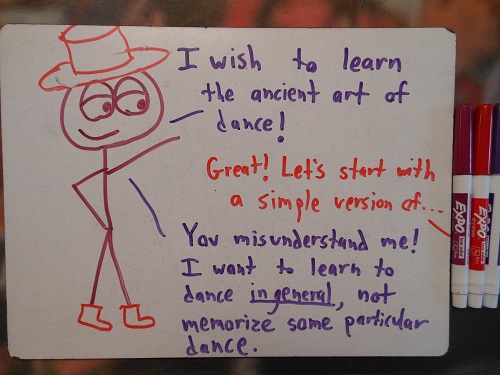 I wish to learn
the ancient art of
dance!
Great! Let's start with
a simple version of...
You misunderstand me!
I want to learn to
dance in general, not
memorize some particular
dance.
EXPO
EXPO